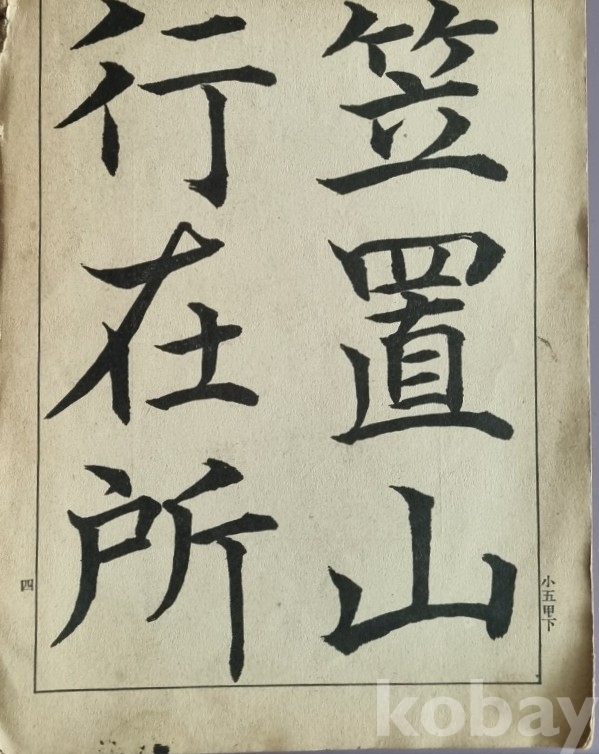 笠置山
行在所
小五甲下
四
kobay